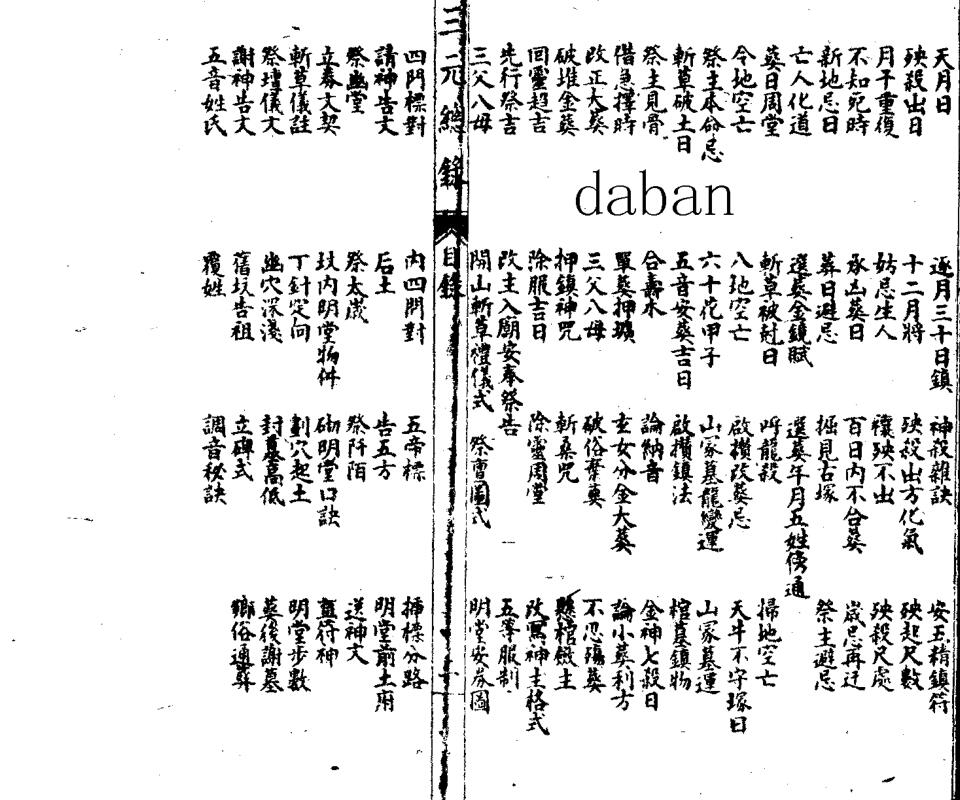 天月日 逐月三十日鎮 神殺雜訣 安五精鎮符
殃殺出日 十二月將 殃殺出方化氣 殃起尺數
月干重復 妨忌生人 禳殃不出 殃殺尺處
不知死時 承凶葬日 百日内不合葬 歲忌再迁
新地忌日 葬日避忌 掘見古塚 祭主避忌
亡人化道 選葬金鏡賦 選葬年月五姓傍通
葬日周堂 斬草破尅日 呼龍殺 掃地空亡
今地空亡 八地空亡 啟攢改葬忌 天牛不守塚日
祭主本命忌 六十花甲子 山家墓龍變運 山家墓運
斬草破土日 五音安葬吉日 啟攢鎮法 棺墓鎮物
祭主見骨 合壽木 論納音 金神七殺日
借急擇時 單葬押壙 玄女分金大葬 論小葬利方
改正大葬 三父八母 破俗棄葬 不忍殤葬
破堆金葬 押鎮神咒 斬桑咒 懸棺斂主
回靈趨吉 除服吉日 除靈周堂 改寫神主格式
先行祭告 改主入廟安奉祭告 五等服制
三父八母 開山斬草禮儀式 祭曹圖式 明堂安券圖
三元總錄 目錄
四門標對 内四門對 五帝標 插標分路
請神告文 后土 告五方 明堂前土府
祭幽堂 祭太歲 祭阡陌 送神文
立券文契 坟内明堂物件 砌明堂口訣 蓋符神
斬草儀註 丁針定向 劃穴起土 明堂步數
祭壇儀文 幽穴深淺 封墓高低 葬後謝墓
謝神告文 舊坟告祖 立碑式 鄉俗通彝
五音姓氏 覆姓 調音秘訣
daban